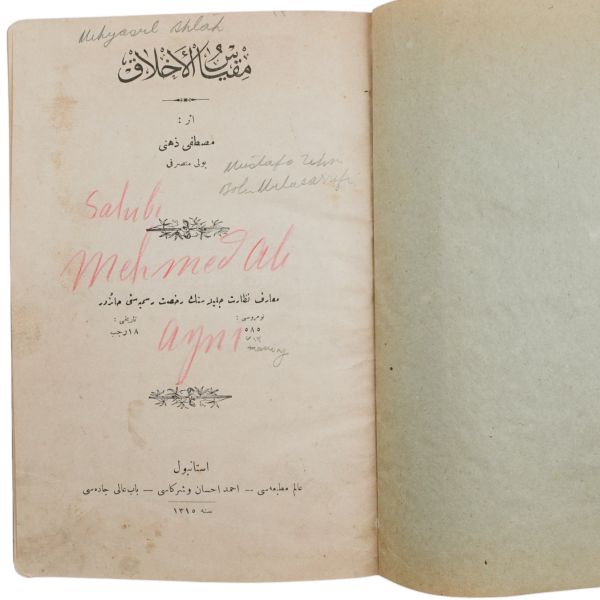 Mihyasul Ahlâk
مقياس الأخلاق
اثر :
مصطفى ذهنى
بولى متصرفى
Mustafa Zihni
Bolu Mutasarrıfı
Sahibi
Mehmed Ali
معارف نظارت جليله سنك رخصت رسميه سنى حائزدر
نومروسى : تاريخى :
٥٨٥ ١٨ رجب
Ayni
استانبول
عالم مطبعه سى — احمد احسان وشركاسى — باب عالى جاده سى
سنه ١٣١٥